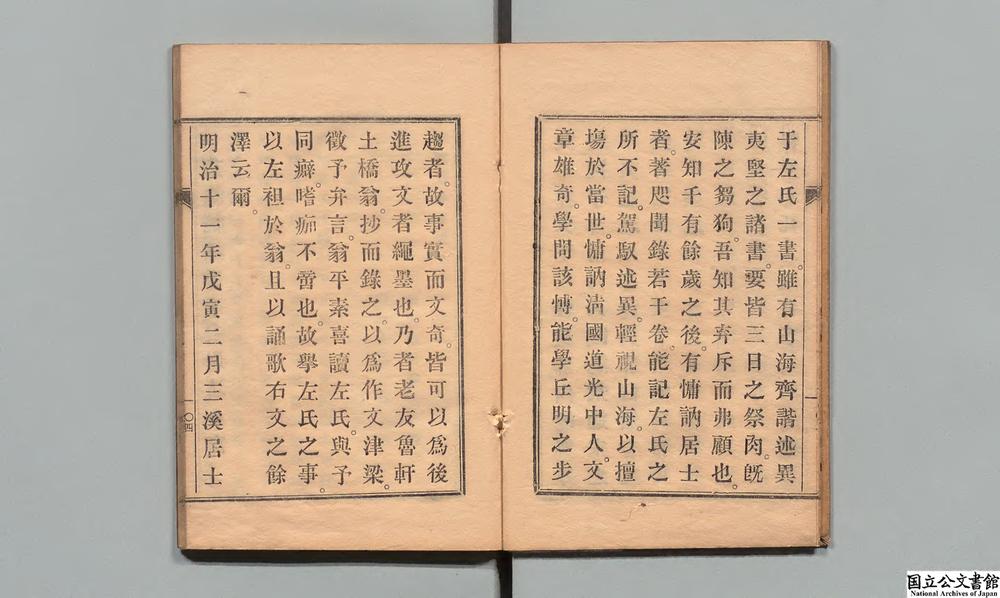 于左氏一書。雖有山海齊諧述異
夷堅之諸書。要皆三日之祭肉。既
陳之芻狗。吾知其弃斥而弗顧也。
安知千有餘歲之後。有慵訥居士
者。著咫聞錄若干卷。能記左氏之
所不記。駕馭述異。輕視山海。以擅
塲於當世。慵訥淸國道光中人。文
章雄奇。學問該愽。能學丘明之步
趨者。故事實而文奇。皆可以爲後
進攻文者繩墨也。乃者老友魯軒
土橋翁。抄而錄之。以爲作文津梁。
徵予弁言。翁平素喜讀左氏。與予
同癖。嗜痂不啻也。故擧左氏之事。
以左袒於翁。且以誦歌右文之餘
澤云爾。
明治十一年戊寅二月三溪居士
一
〇四
国立公文書館
National Archives of Japan